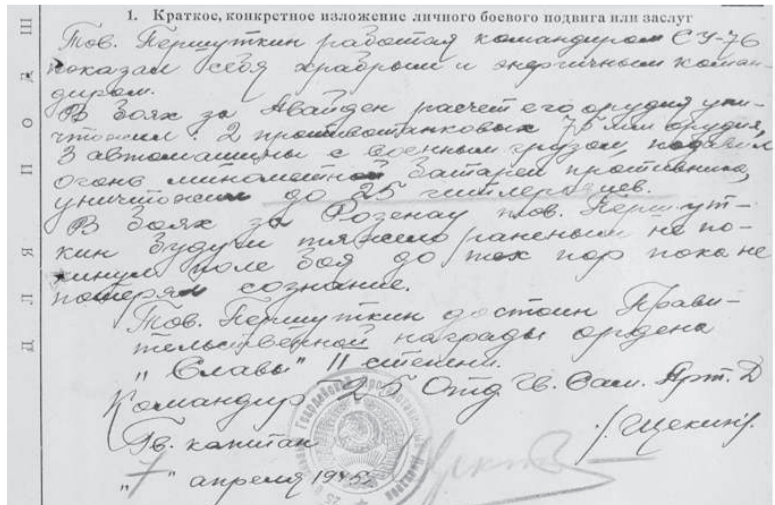 1. Краткое, конкретное изложение личного боевого подвига или заслуг
Тов. Першуткин работая командиром СУ-76
показал себя храбрым и энергичным коман-
диром.
В боях за Авайден расчет его орудия уни-
чтожил: 2 противотанковых 75 мм орудия,
3 автомашины с военным грузом, подавил
огонь минометной батареи противника,
уничтожил до 25 гитлеровцев.
В боях за Розенау тов. Першут-
кин будучи тяжело раненым не по-
кинул поле боя до тех пор пока не
потерял сознание.
Тов. Першуткин достоин Прави-
тельственной награды ордена
"Славы" II степени.
Командир 25 Отд. Гв. Сам. Арт. Д
Гв. капитан /Щекин/.
"7" апреля 1945г.
ДЛЯ ПОДШ